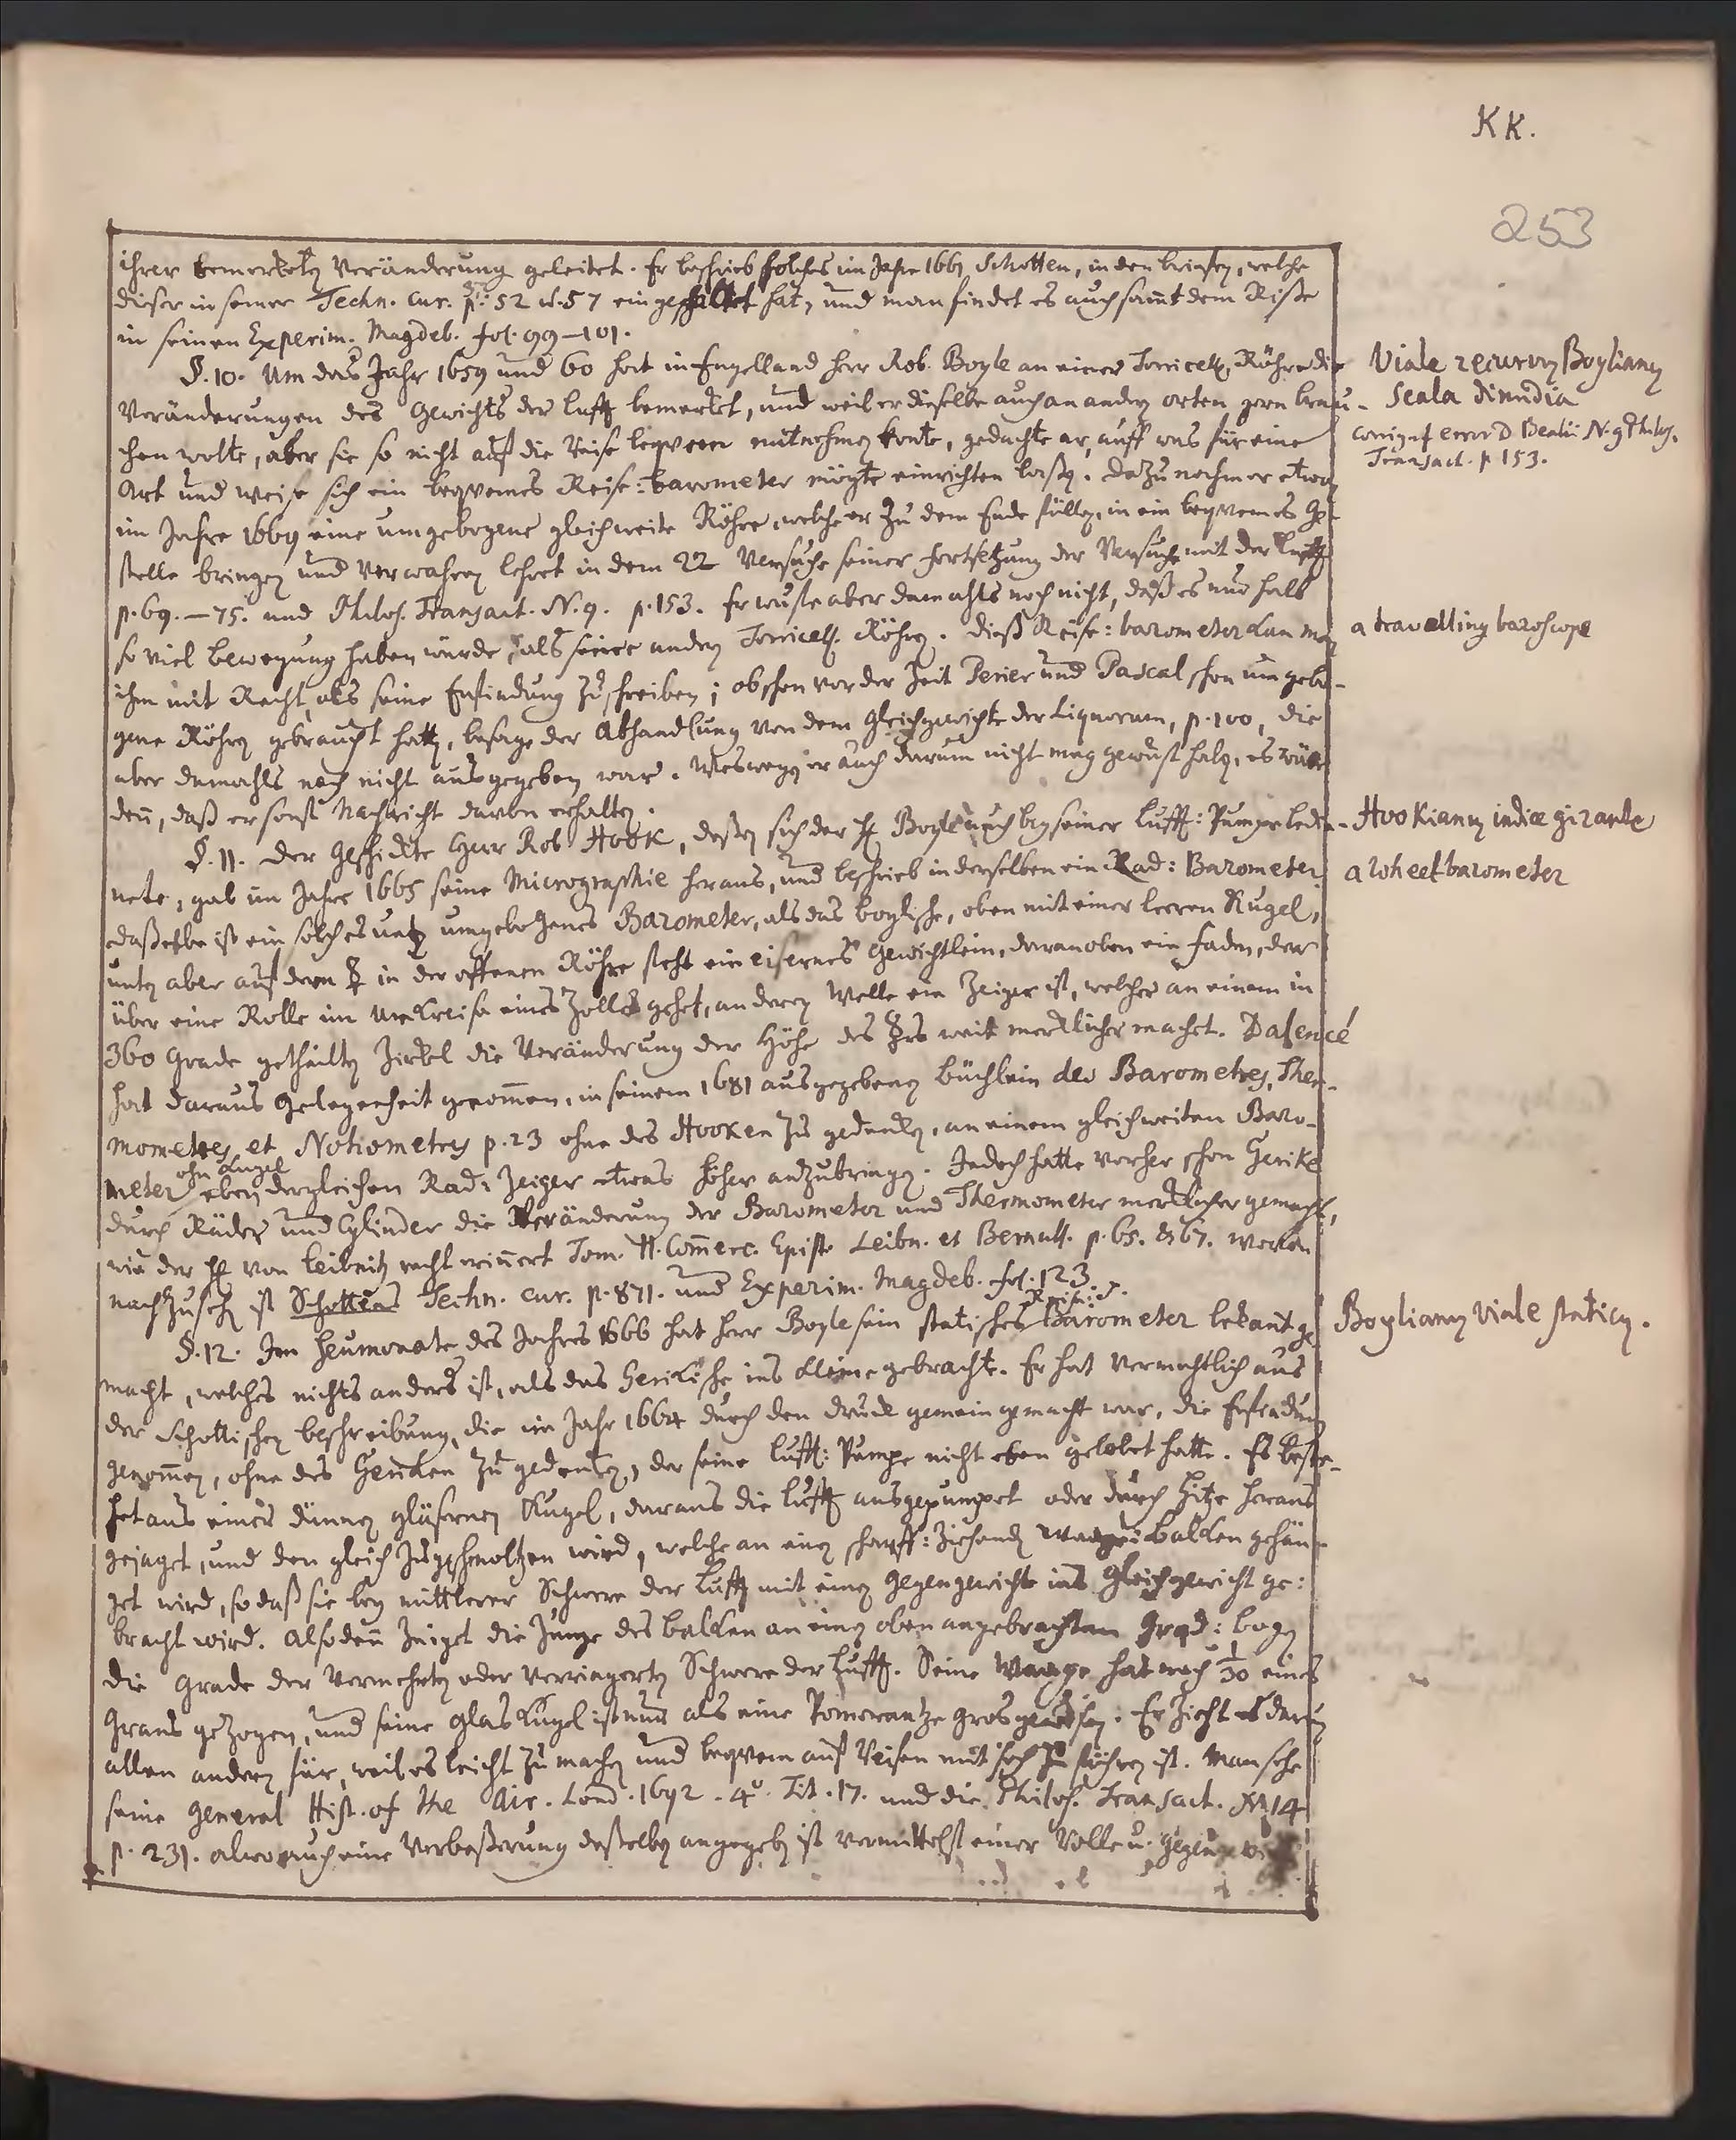 KK.
253
ihrer bemerketen Veränderung geleitet. Er beschrieb solches im Jahre 1661 Schotten, in den briefen, welche
dieser in seiner Techn. cur. p. 52 u. 57 eingeschaltet hat, und man findet es auch samt dem Risse
in seinen Experim. Magdeb. fol. 99—101.
§. 10. Um das Jahr 1659 und 60 hat in Engelland Herr Rob. Boyle an einer Torricell. Röhre die
Veränderungen des Gewichts der lufft bemerket, und weil er dieselbe auch an andern orten gern brau-
chen wolte, aber sie so nicht auf die Reise beqvem mitnehmen konte, gedachte er, auff was für eine
Art und weise sich ein beqvemes Reise: barometer mögte einrichten lassen. Dazu nahm er etwa
im Jahre 1669 eine umgebogene gleichweite Röhre, welche er zu dem Ende füllen, in ein beqvemes Ge-
stelle bringen und verwahren lehret in dem 22 Versuche seiner fortsetzung der Versuche mit der lufft
p. 69.—75. und Philos. Transact. N. 9. p. 153. Er wuste aber damahls noch nicht, daß es nur halb
so viel bewegung haben würde, als seine andern Torricell. Röhren. Dieß Reise: barometer kan man
ihm mit Recht, als seine Erfindung zuschreiben; obschon vor der Zeit Perier und Pascal schon umgebo-
gene Röhren gebraucht hatten, besage der Abhandlung von dem gleichgewichte der Liquorum, p. 100, die
aber damahls noch nicht ausgegeben war. Weswegen er auch darum nicht mag gewust haben, es wäre
denn, daß er sonst Nachricht davon erhalten.
§. 11. Der geschickte Herr Rob. Hook, dessen sich der H. Boyle auch bey seiner lufft: Pumpe bedie-
nete, gab im Jahre 1665 seine Micrographie heraus, und beschrieb in derselben ein Rad: Barometer.
dasselbe ist ein solches unten umgebogenes Barometer, als das boylische, oben mit einer leeren Kugel,
unten aber auf dem ☿ in der offenen Röhre steht ein eisernes Gewichtlein, daran oben ein faden, der
über eine Rolle im Umkreise eines Zolles gehet, an deren Welle ein Zeiger ist, welcher an einem in
360 Grade getheilten Zirkel die Veränderung der Höhe des ☿rs weit mercklicher machet. Dalencé
hat daraus Gelegenheit genommen, in seinem 1681 ausgegebenen büchlein des Barometres, Ther-
mometres et Notiometres p. 23 ohne des Hooken zu gedenken, an einem gleichweiten Baro-
meter ohn Kugel eben dergleichen Rad: Zeiger etwas höher anzubringen. Jedoch hatte vorher schon Gerike
durch Räder und Cylinder die Veränderung der Barometer und Thermometer mercklicher gemacht,
wie der H. von Leibnitz recht erinnert Tom. II. Commerc. Epist. Leibn. et Bernull. p. 65. & 67. Wobey
nachzusehen ist Schottens Techn. cur. p. 871. und Experim. Magdeb. fol. 123.
§. 12. Im Heumonate des Jahres 1666 hat Herr Boyle sein statisches Barometer bekant ge
macht, welches nichts anders ist, als das Gerikische ins kleine gebracht. Er hat vermuthlich aus
der Schottischen beschreibung, die im Jahr 1664 durch den druck gemein gemacht war, die Erfindung
genommen, ohne des Geriken zu gedenken, der seine lufft: Pumpe nicht eben gelobet hatte. Es beste-
het aus einer dünnen gläsernen Kugel, daraus die lufft ausgepumpet oder durch Hitze heraus
gejaget, und den gleich zugeschmoltzen wird, welche an einen scharff: ziehenden Waage: balken gehän-
get wird, so daß sie bey mittlerer Schwere der lufft mit einem gegengewichte ins gleichgewicht ge:
bracht wird. Alsdenn zeiget die Zunge des balken an einem oben angebrachten Grad: bogen
die Grade der vermehrten oder verringerten Schwere der Lufft. Seine Waage hat noch 1/30 eines
Grans gezogen, und seine glas Kugel ist nur als eine Pomerantze gros gewesen: Er zieht es darum
allen andern für, weil es leicht zu machen und beqvem auf Reisen mit sich zu führen ist. Man sehe
seine General Hist. of the Air. Lond. 1692. 4°. Tit. 17. und die Philos. Transact. N. 14
p. 231. alwo auch eine Verbesserung desselben angegeben ist vermittelst einer Rolle u.
Viale recurvum Boylianum
Scala dimidia
corrige errorem D. Bealii N. 9 Philos.
Transact. p 153.
a travelling baroscope
Hookianum indice girante
a wheel barometer
Boylianum Viale staticum.